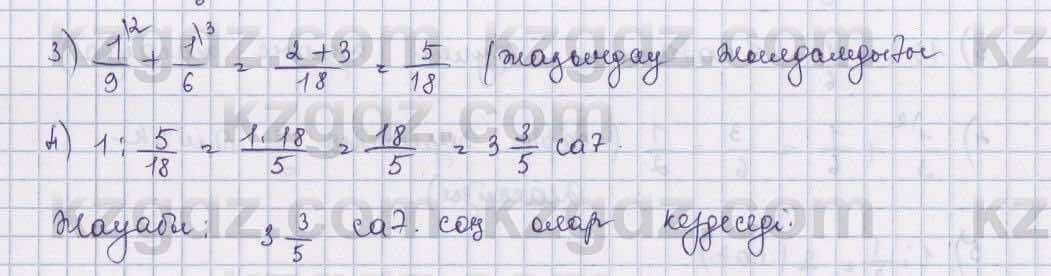 3) 1\2/9 + 1\3/6 = 2+3/18 = 5/18 (жақындау жылдамдығы
4) 1 : 5/18 = 1·18/5 = 18/5 = 3 3/5 сағ.
Жауабы: 3 3/5 сағ. соң олар кездеседі.